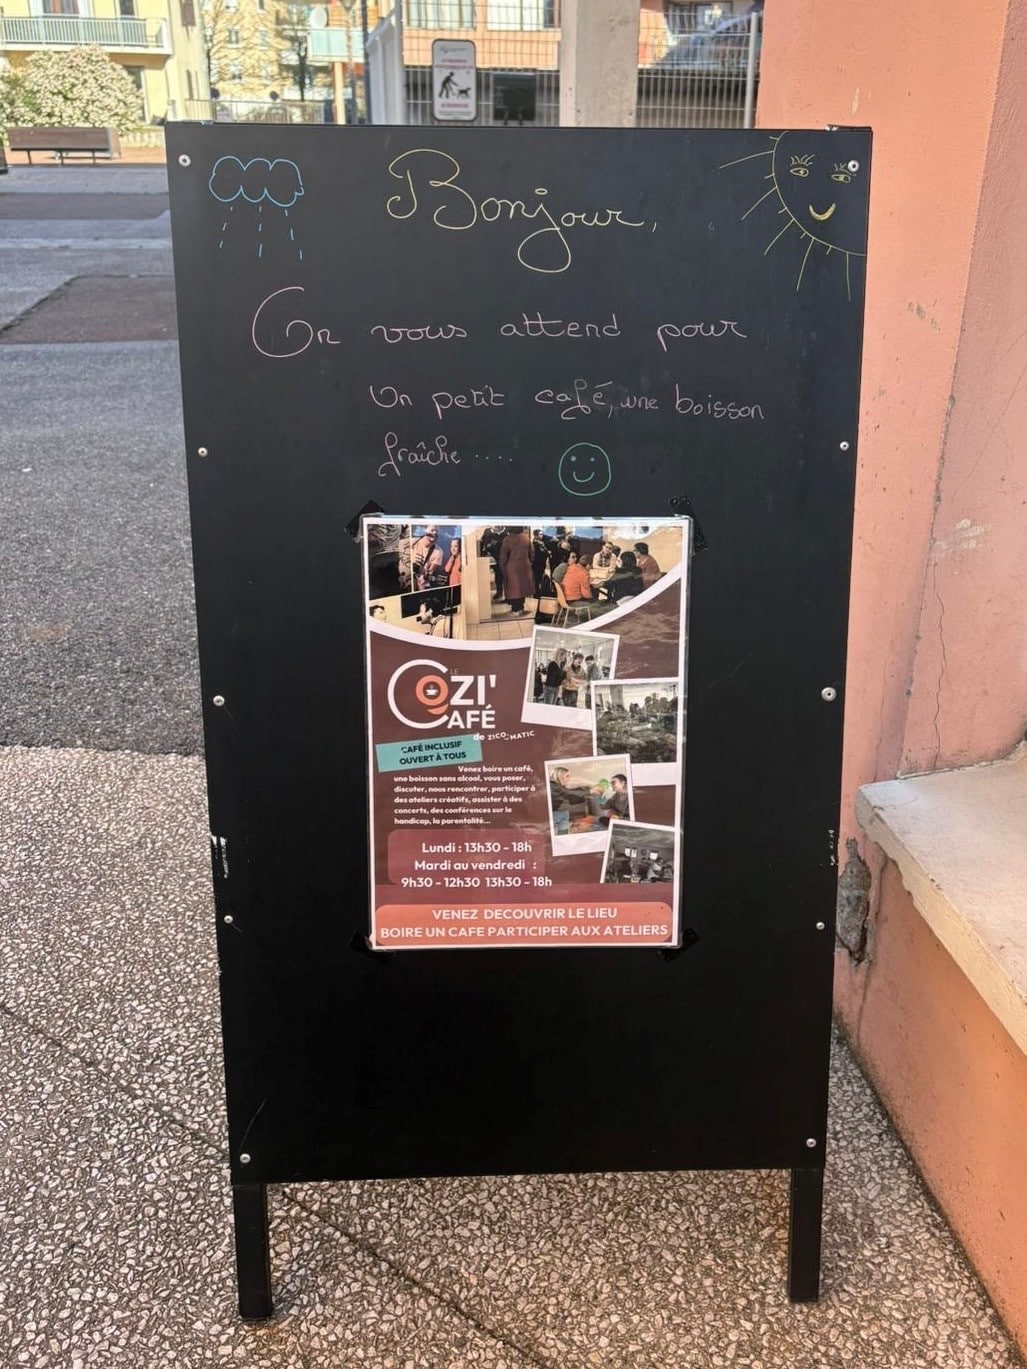 Bonjour,
On vous attend pour
Un petit café, une boisson
fraîche ....
LE
COZI'
CAFÉ
de ZICO-MATIC
CAFÉ INCLUSIF
OUVERT À TOUS
Venez boire un café,
une boisson sans alcool, vous poser,
discuter, nous rencontrer, participer à
des ateliers créatifs, assister à des
concerts, des conférences sur le
handicap, la parentalité...
Lundi : 13h30 - 18h
Mardi au vendredi :
9h30 - 12h30 13h30 - 18h
VENEZ DECOUVRIR LE LIEU
BOIRE UN CAFE PARTICIPER AUX ATELIERS